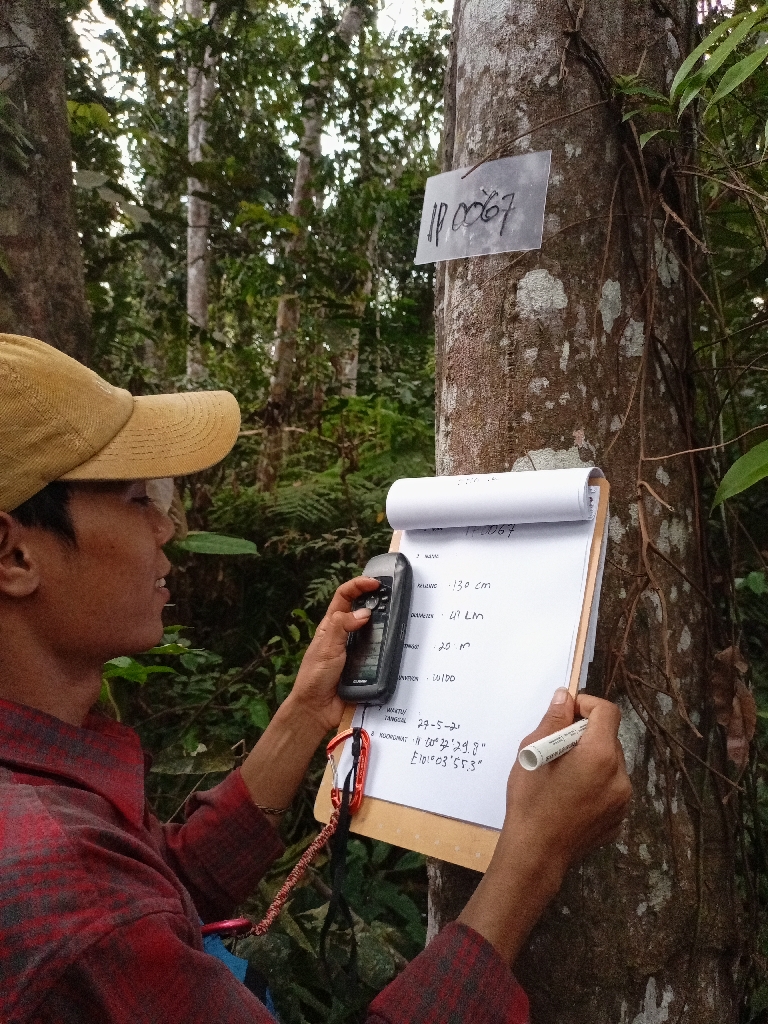 IP 0067
IP 0067
2 NAMA
KELILING : 130 cm
DIAMETER : 41 cm
TINGGI : 20 m
: W100
7 WAKTU/
TANGGAL
: 27-5-2
8 KOORDINAT : N 00°32'29.8"
E 101°03'55.3"
GARMIN